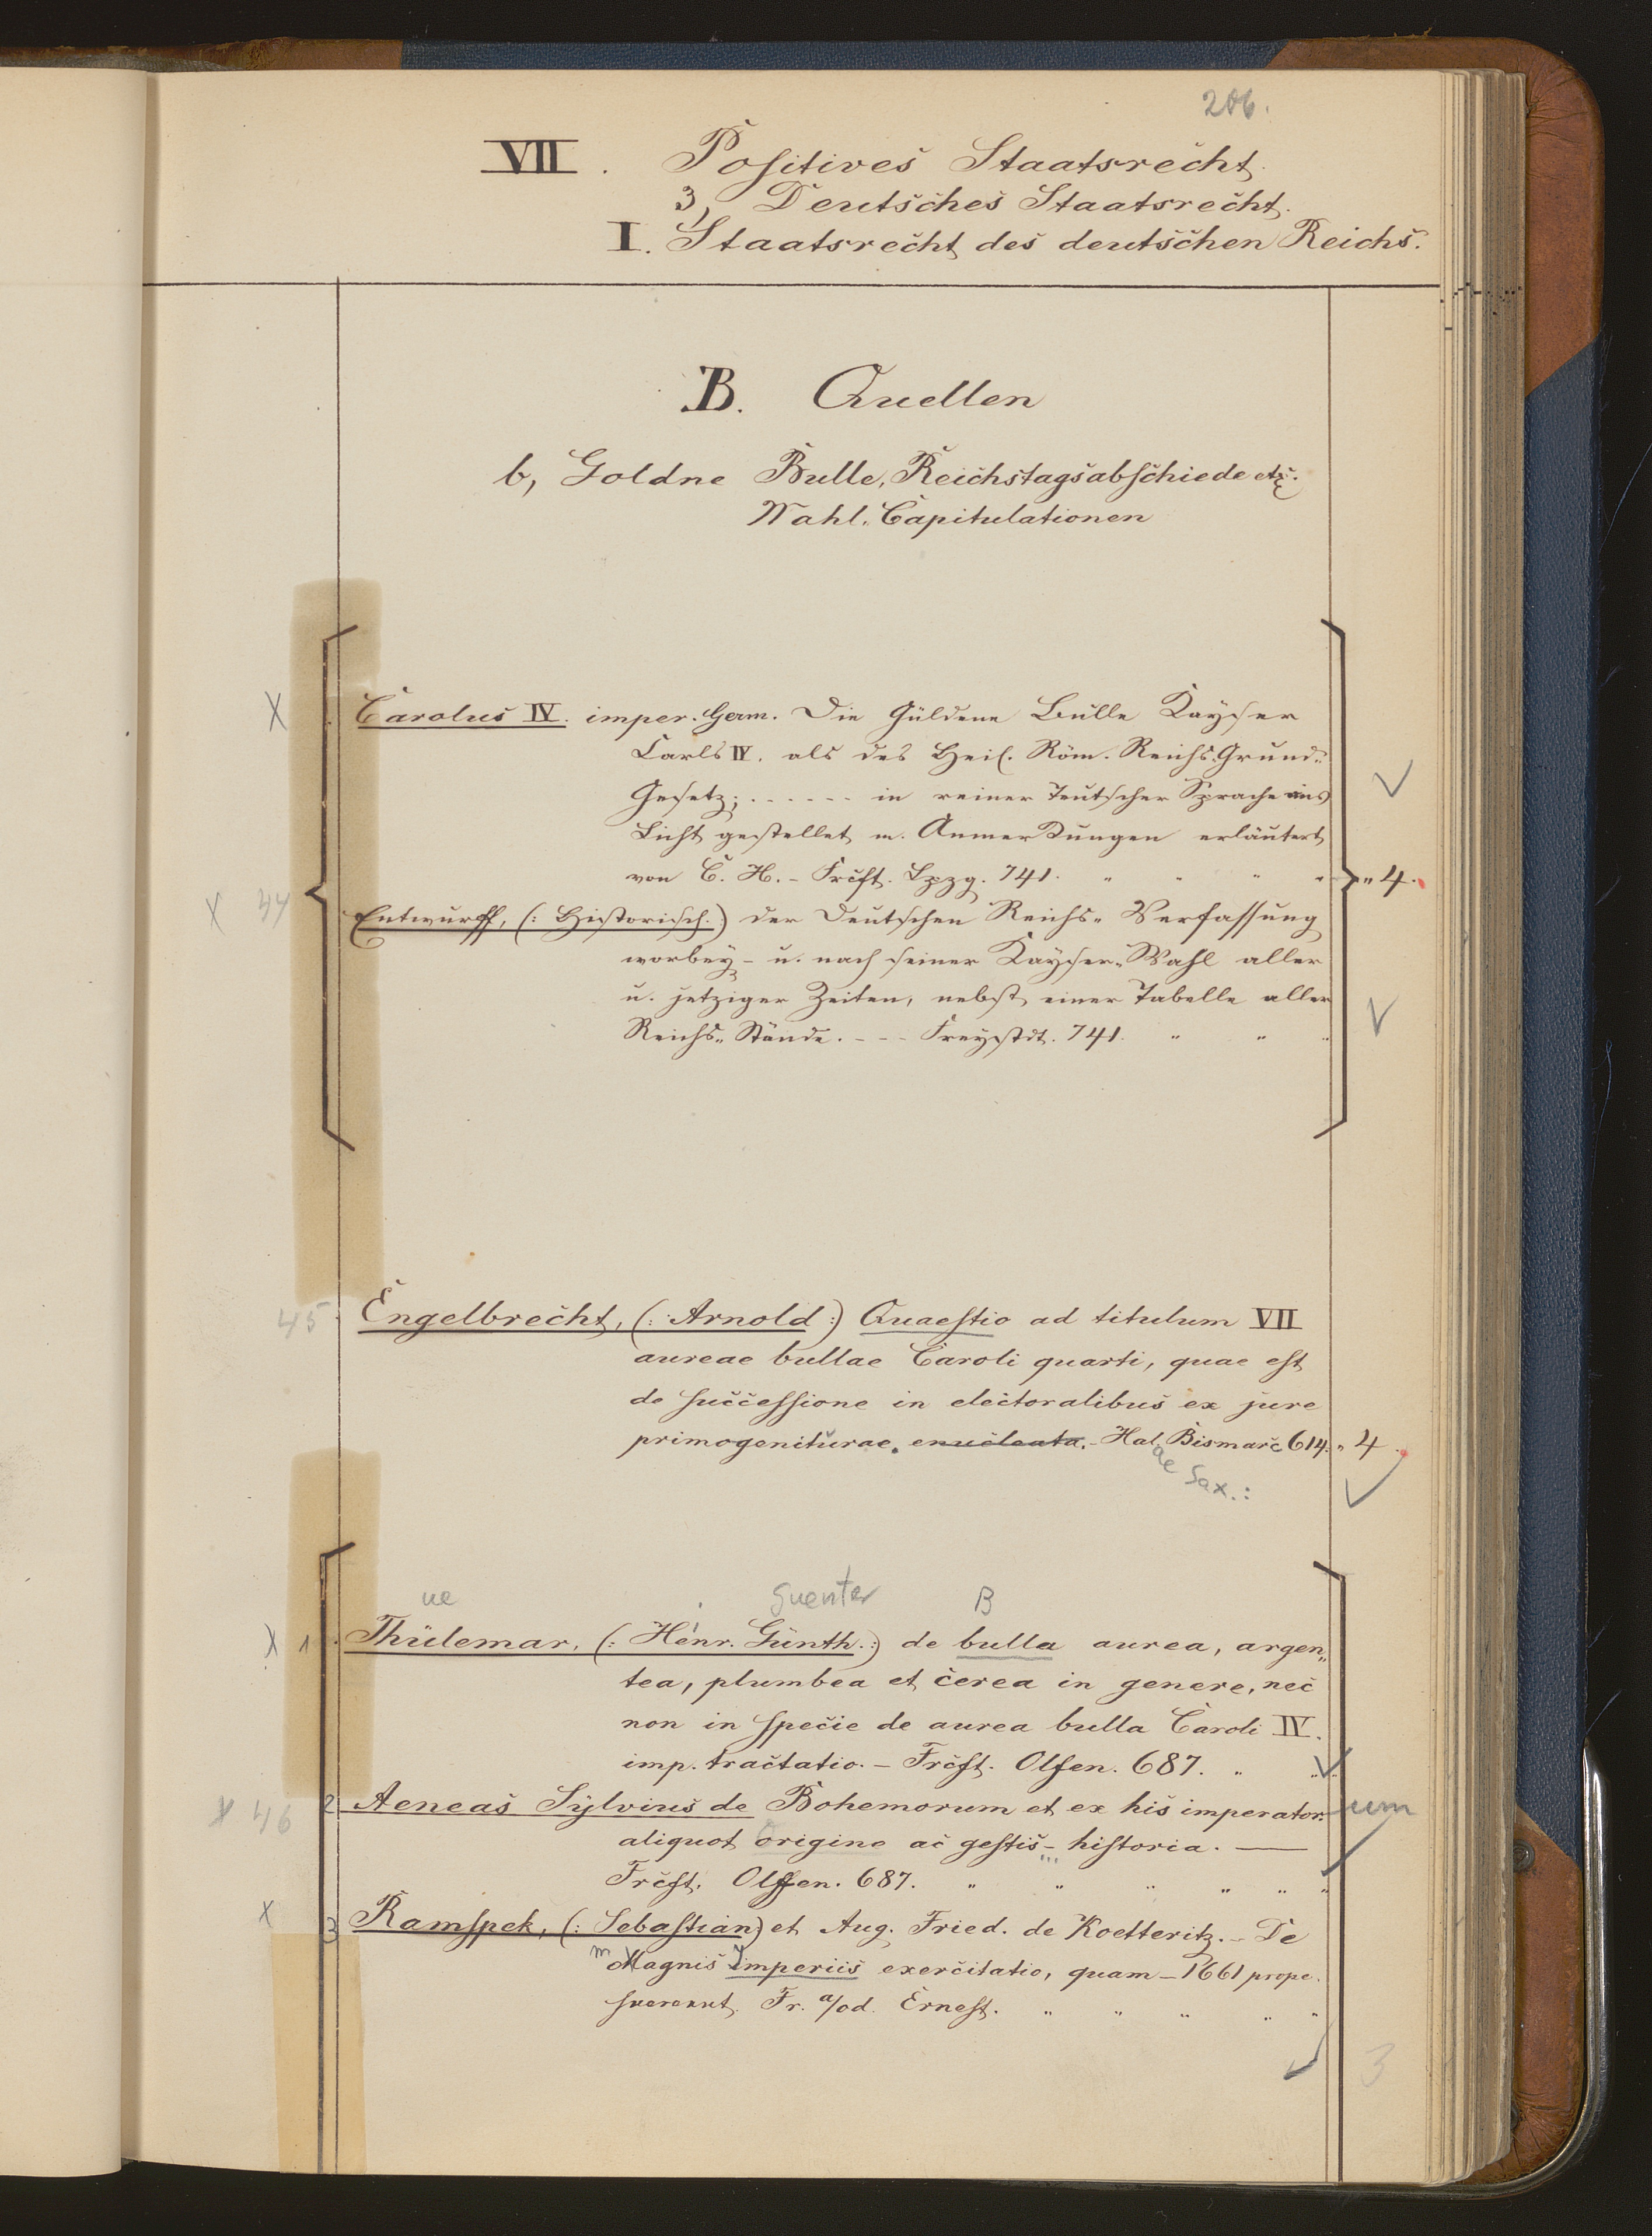 206.
VII. Positives Staatsrecht.
3, Deutsches Staatsrecht.
I. Staatsrecht des deutschen Reichs.
B. Quellen
b, Goldne Bulle, Reichstagsabschiede etc.
Wahl-Capitulationen
X Carolus IV. imper. Germ. Die Güldene Bulle Kayser
Carls IV. als des Heil. Röm. Reichs-Grund-
Gesetz; ...... in reiner Teutscher Sprache ins
Licht gestellet m. Anmerkungen erläutert
von C. H. - Frcft. Lpzg. 741. " " " " " 4.
X 44 Entwurff, (: Historisch.) der Deutschen Reichs-Verfassung
worbey - u. nach seiner Kayser-Wahl aller
u. jetziger Zeiten, nebst einer Tabelle aller
Reichs-Stände. - - - Freystdt. 741. " " "
45 Engelbrecht, (: Arnold :) Quaestio ad titulum VII
aureae bullae Caroli quarti, quae est
de successione in electoralibus ex jure
primogeniturae. enucleata. - Hal. Bismarc 614. " 4.
ae Sax.:
ue Guenter B
X 1 Thülemar, (: Henr. Günth. :) de bulla aurea, argen-
tea, plumbea et cerea in genere, nec
non in specie de aurea bulla Caroli IV.
imp. tractatio. - Frcft. Olfen. 687. " "
X 46 2 Aeneas Sylvius de Bohemorum et ex his imperator. um
aliquot origine ac gestis - historia. —
Frcft. Olffen. 687. " " " " " "
X 3 Ramspek, (: Sebastian) et Aug. Fried. de Koetteritz. - De
m Magnis imperiis exercitatio, quam - 1661 propo-
suerunt. Fr. a/od. Ernest. " " " " "
3